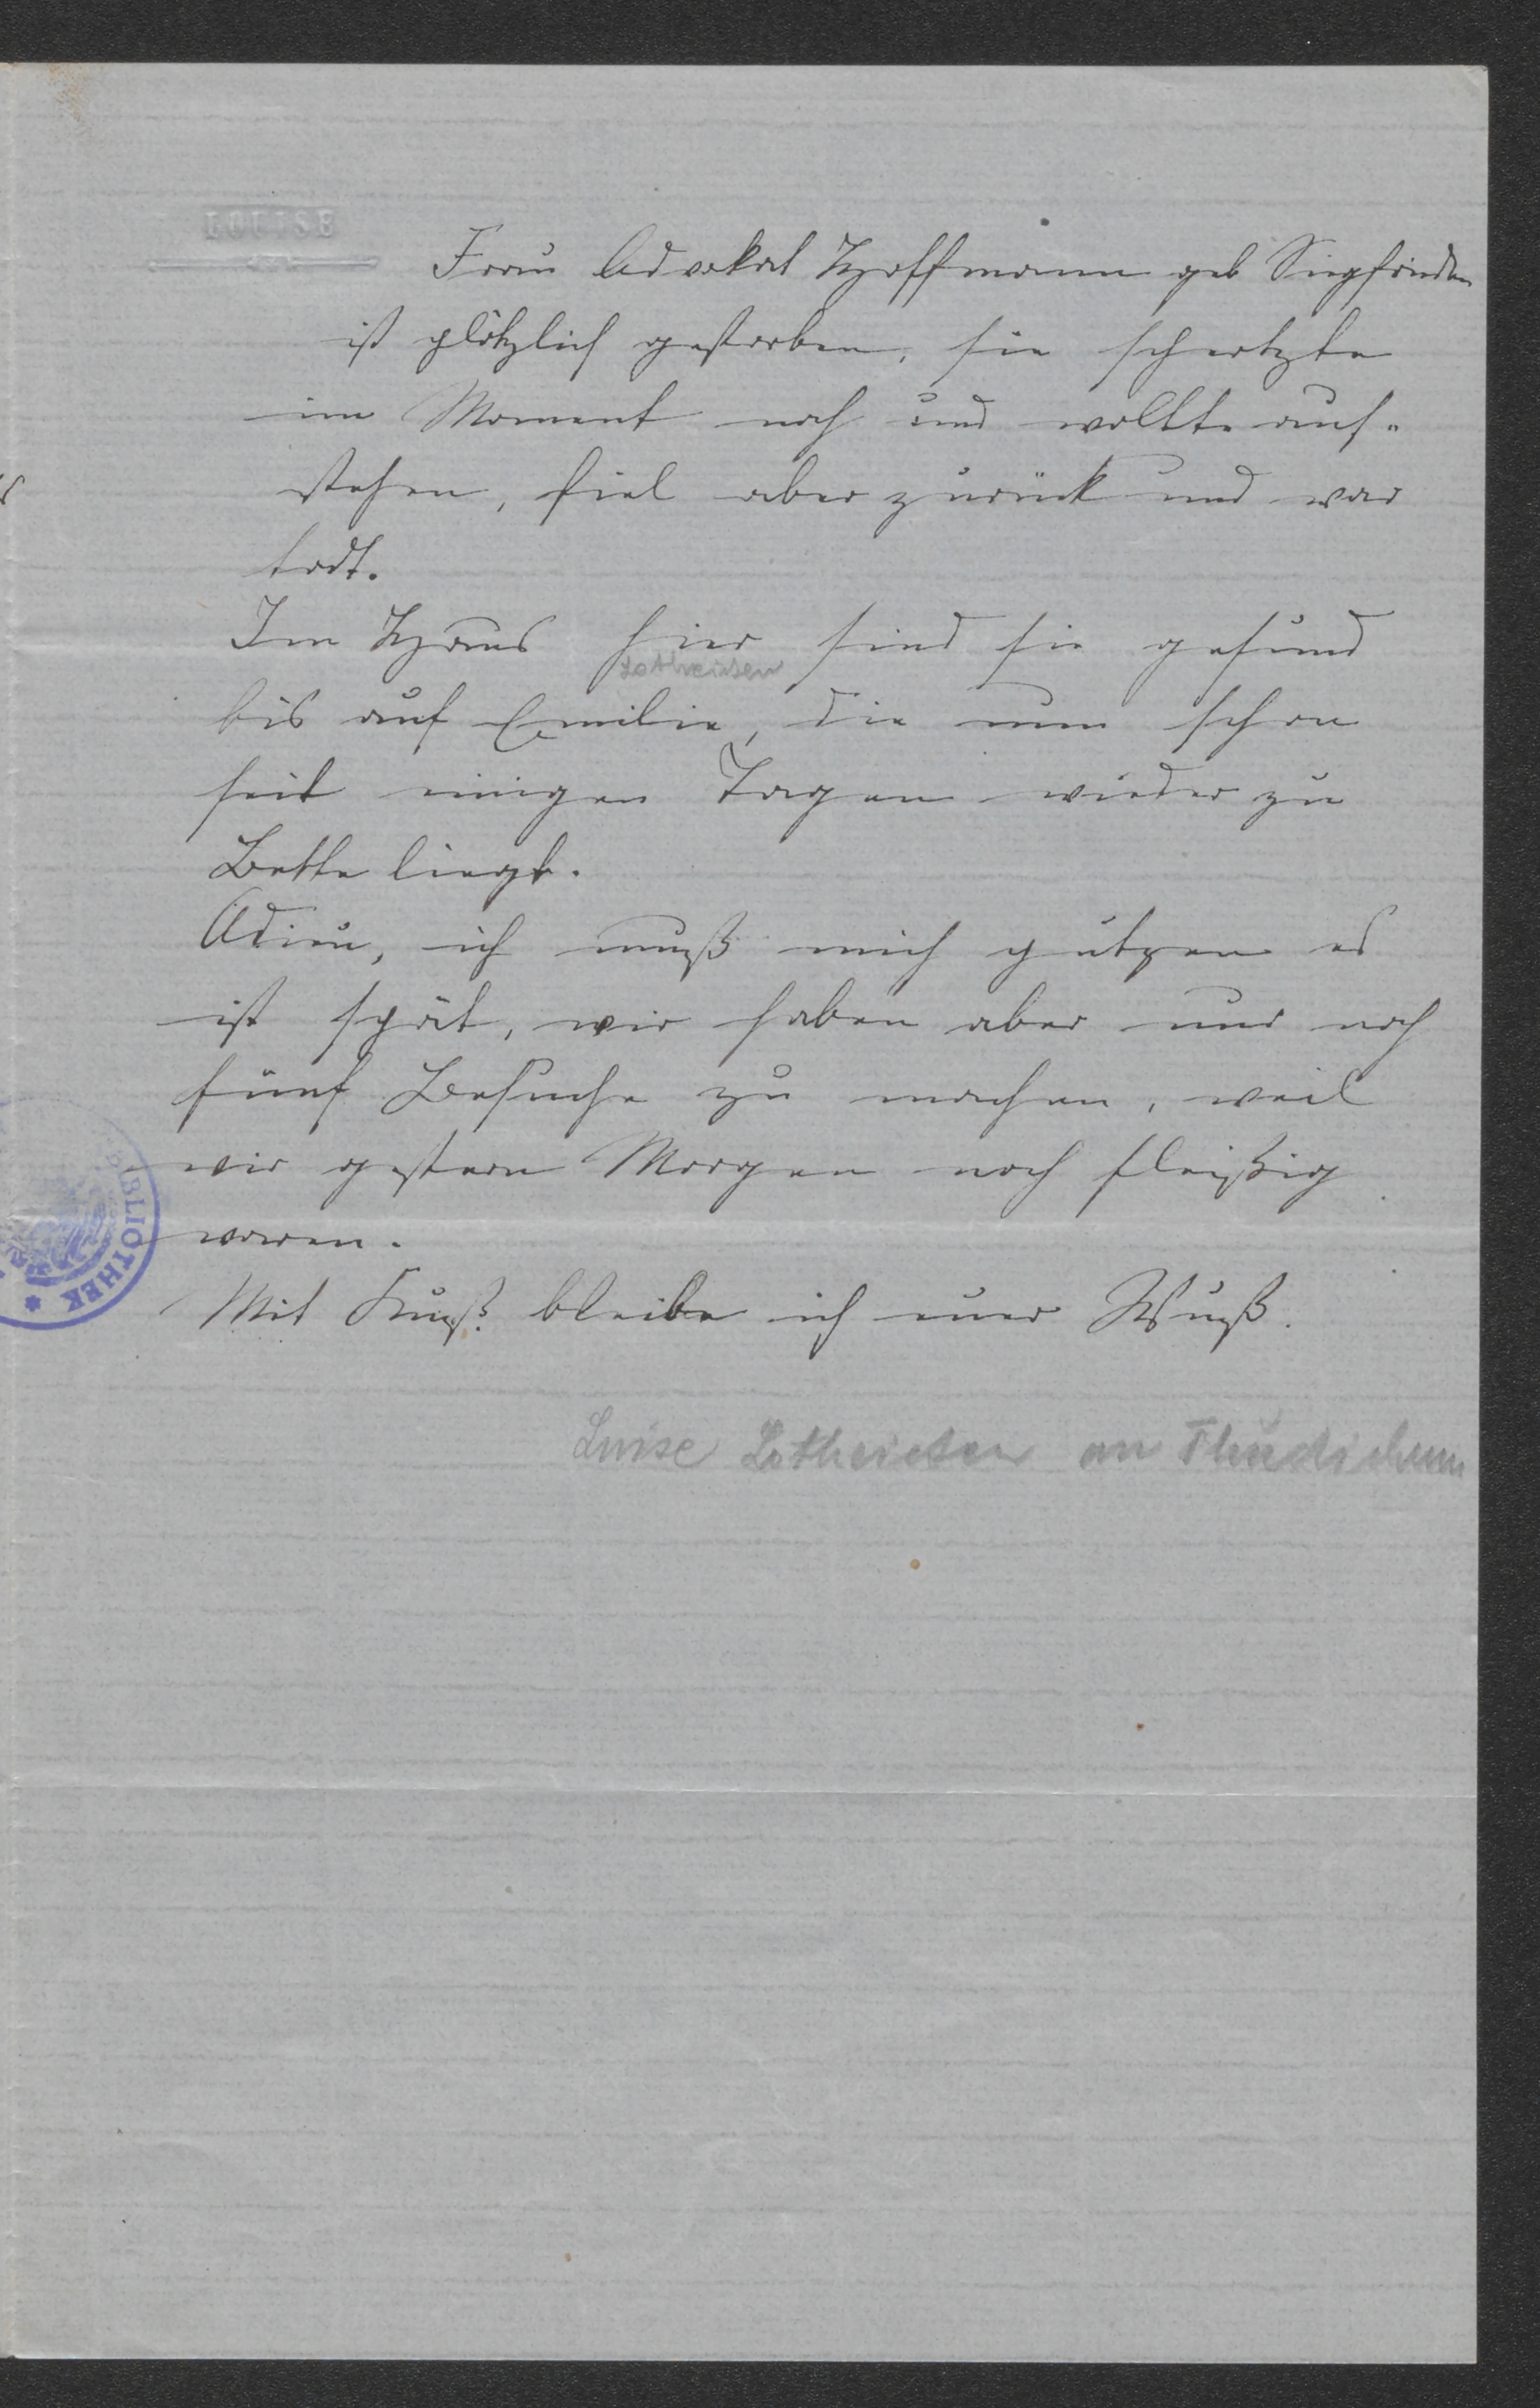 LOUISE
Frau Advokat Hoffmann geb Siegfrieden
ist plötzlich gestorben, sie schertzte
im Moment noch und wollte auf-
stehen, fiel aber zurück und war
todt.
Im Haus hier sind sie gesund
Lotheissen
bis auf Emilie, die nun schon
seit einigen Tagen wieder zu
Bette liegt.
Adieu, ich muß mich putzen es
ist spät, wir haben aber nur noch
fünf Besuche zu machen, weil
wir gestern Morgen noch fleißig
waren.
BIBLIOTHEK
Mit Kuß bleibe ich euer Wuß.
Luise Lotheissen an Thudichum